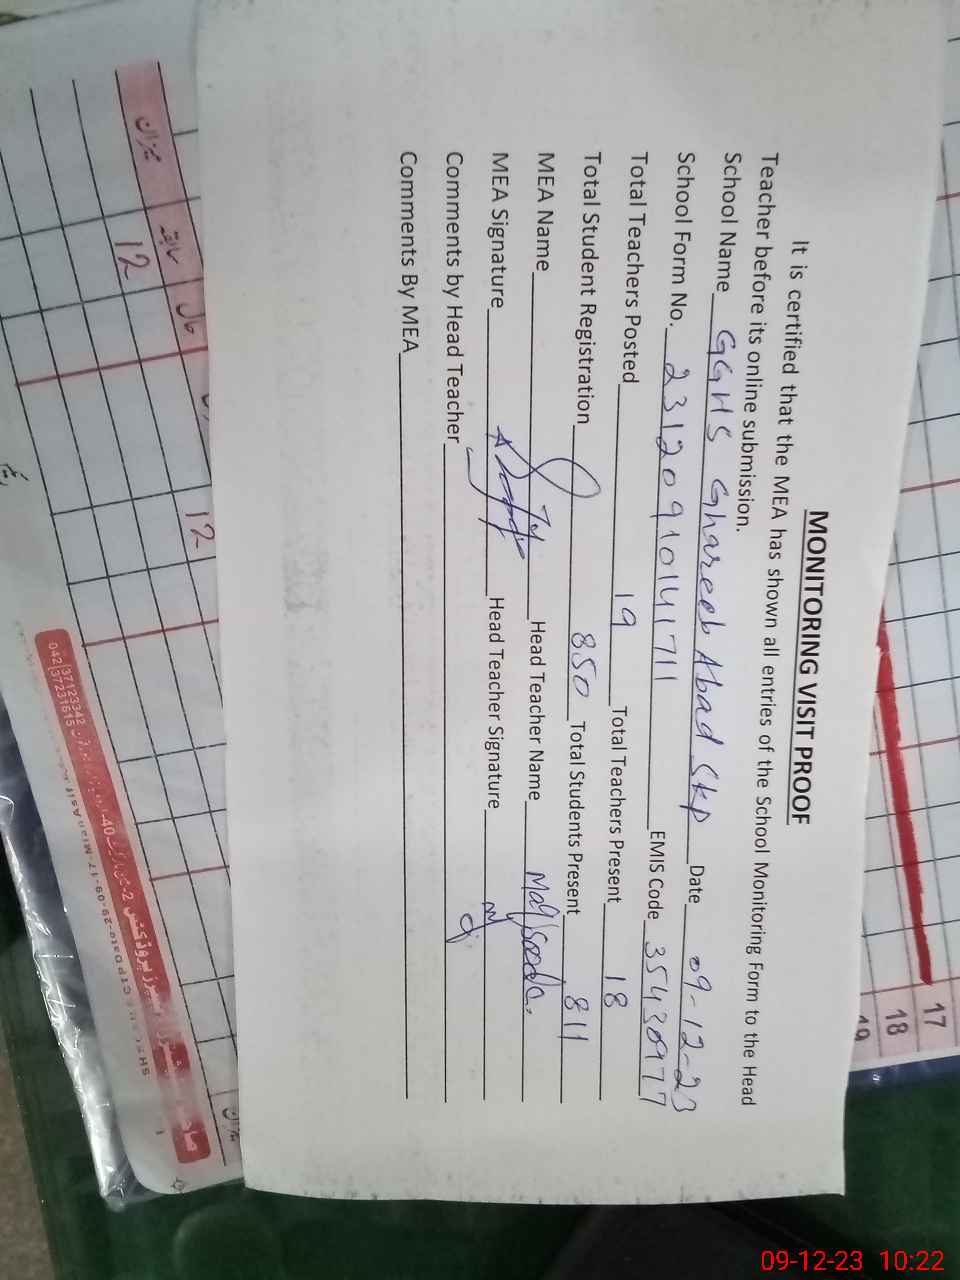 MONITORING VISIT PROOF
It is certified that the MEA has shown all entries of the School Monitoring Form to the Head
Teacher before its online submission.
School Name GGHS Ghareeb Abad SKP Date 09-12-23
School Form No. 23120910141711 EMIS Code 35430977
Total Teachers Posted 19 Total Teachers Present 18
Total Student Registration 850 Total Students Present 811
MEA Name Head Teacher Name
MEA Signature Head Teacher Signature
Comments by Head Teacher
Comments By MEA
17
18
19
میزان
سابقہ
حال
12
12
042 37123342
042 37231615
09-12-23 10:22